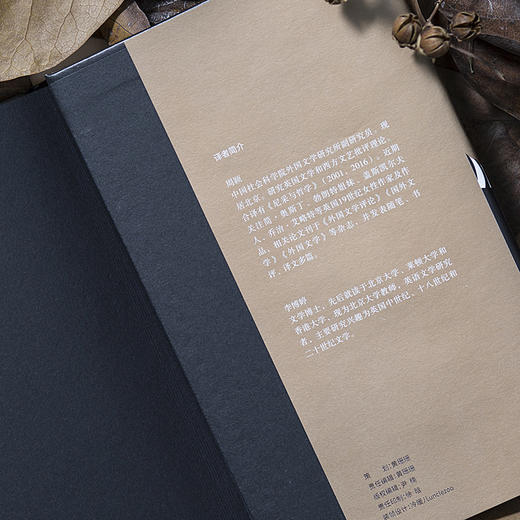 译者简介
周颖
中国社会科学院外国文学研究所副研究员，现
居北京。研究英国文学和西方文艺批评理论，
合译有《尼采与哲学》（2001，2016），近期
关注简·奥斯丁、勃朗特姐妹、盖斯凯尔夫
人、乔治·艾略特等英国19世纪女性作家及作
品，相关论文刊于《外国文学评论》《国外文
学》《外国文学》等杂志，并发表随笔、书
评、译文多篇。
李博婷
文学博士，先后就读于北京大学、莱顿大学和
香港大学，现为北京大学教师，英语文学研究
者，主要研究兴趣为英国中世纪、十八世纪和
二十世纪文学。
策 划：黄珊珊
责任编辑：黄珊珊
版权编辑：尹 楠
责任印制：徐 瑶
装帧设计：冷暖/Lunclezoo